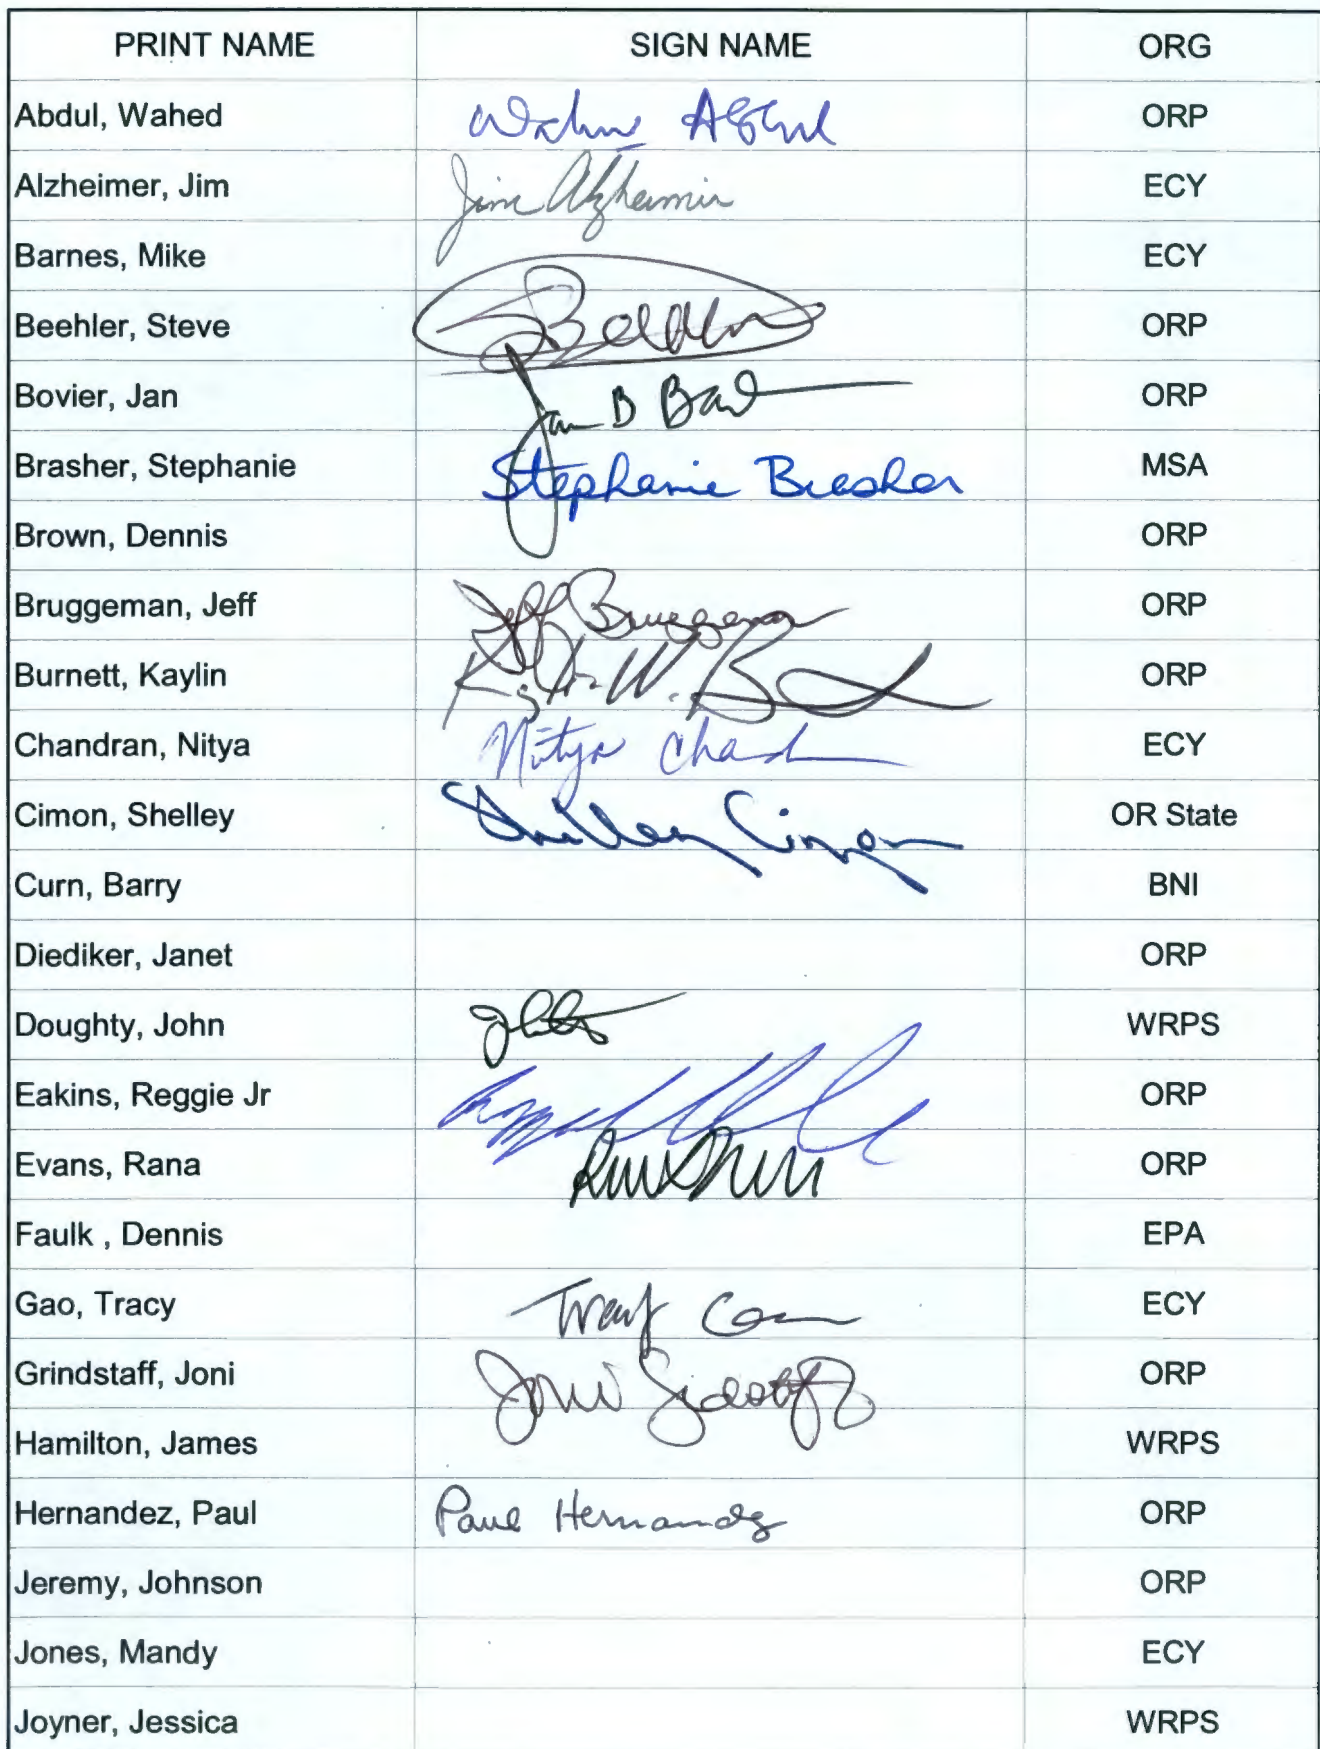 PRINT NAME SIGN NAME ORG
Abdul, Wahed Wahed Abdul ORP
Alzheimer, Jim Jim Alzheimer ECY
Barnes, Mike ECY
Beehler, Steve ORP
Bovier, Jan Jan B ORP
Brasher, Stephanie Stephanie Brasher MSA
Brown, Dennis ORP
Bruggeman, Jeff Jeff Bruggeman ORP
Burnett, Kaylin W. ORP
Chandran, Nitya Nitya ECY
Cimon, Shelley Shelley Cimon OR State
Curn, Barry BNI
Diediker, Janet ORP
Doughty, John WRPS
Eakins, Reggie Jr ORP
Evans, Rana ORP
Faulk , Dennis EPA
Gao, Tracy Tracy Gao ECY
Grindstaff, Joni Joni ORP
Hamilton, James WRPS
Hernandez, Paul Paul Hernandez ORP
Jeremy, Johnson ORP
Jones, Mandy ECY
Joyner, Jessica WRPS